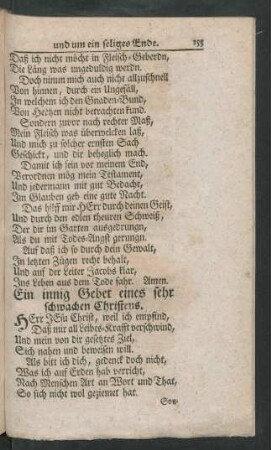 und um ein seliges Ende. 155
Daß ich nicht möcht in Fleisch-Geberdn,
Die Läng was ungeduldig werdn.
Doch nimm mich auch nicht allzuschnell
Von hinnen, durch ein Ungefäll,
In welchem ich den Gnaden-Bund,
Von Hertzen nit betrachten kund.
Sondern zuvor nach rechter Maß,
Mein Fleisch was überwelcken laß,
Und mich zu solcher ernsten Sach
Geschickt, und dir beheglich mach.
Damit ich sein vor meinem End,
Verordnen mög mein Testament,
Und jedermann mit gut Bedacht,
Im Glauben geb eine gute Nacht.
Das hilff mir HErr durch deinen Geist,
Und durch den edlen theuren Schweiß,
Der dir im Garten ausgedrungn,
Als du mit Todes-Angst gerungn.
Auf daß ich so durch dein Gewalt,
In letzten Zügen recht behalt,
Und auf der Leiter Jacobs klar,
Ins Leben aus dem Tode fahr. Amen.
Ein innig Gebet eines sehr
schwachen Christens.
HErr JEsu Christ, weil ich empfind,
Daß mir all Leibes-Krafft verschwind,
Und mein von dir gesetztes Ziel,
Sich nahen und beweisen will.
Als bitt ich dich, gedenck doch nicht,
Was ich auf Erden hab verricht,
Nach Menschen Art an Wort und That,
So sich nicht wol geziemet hat.